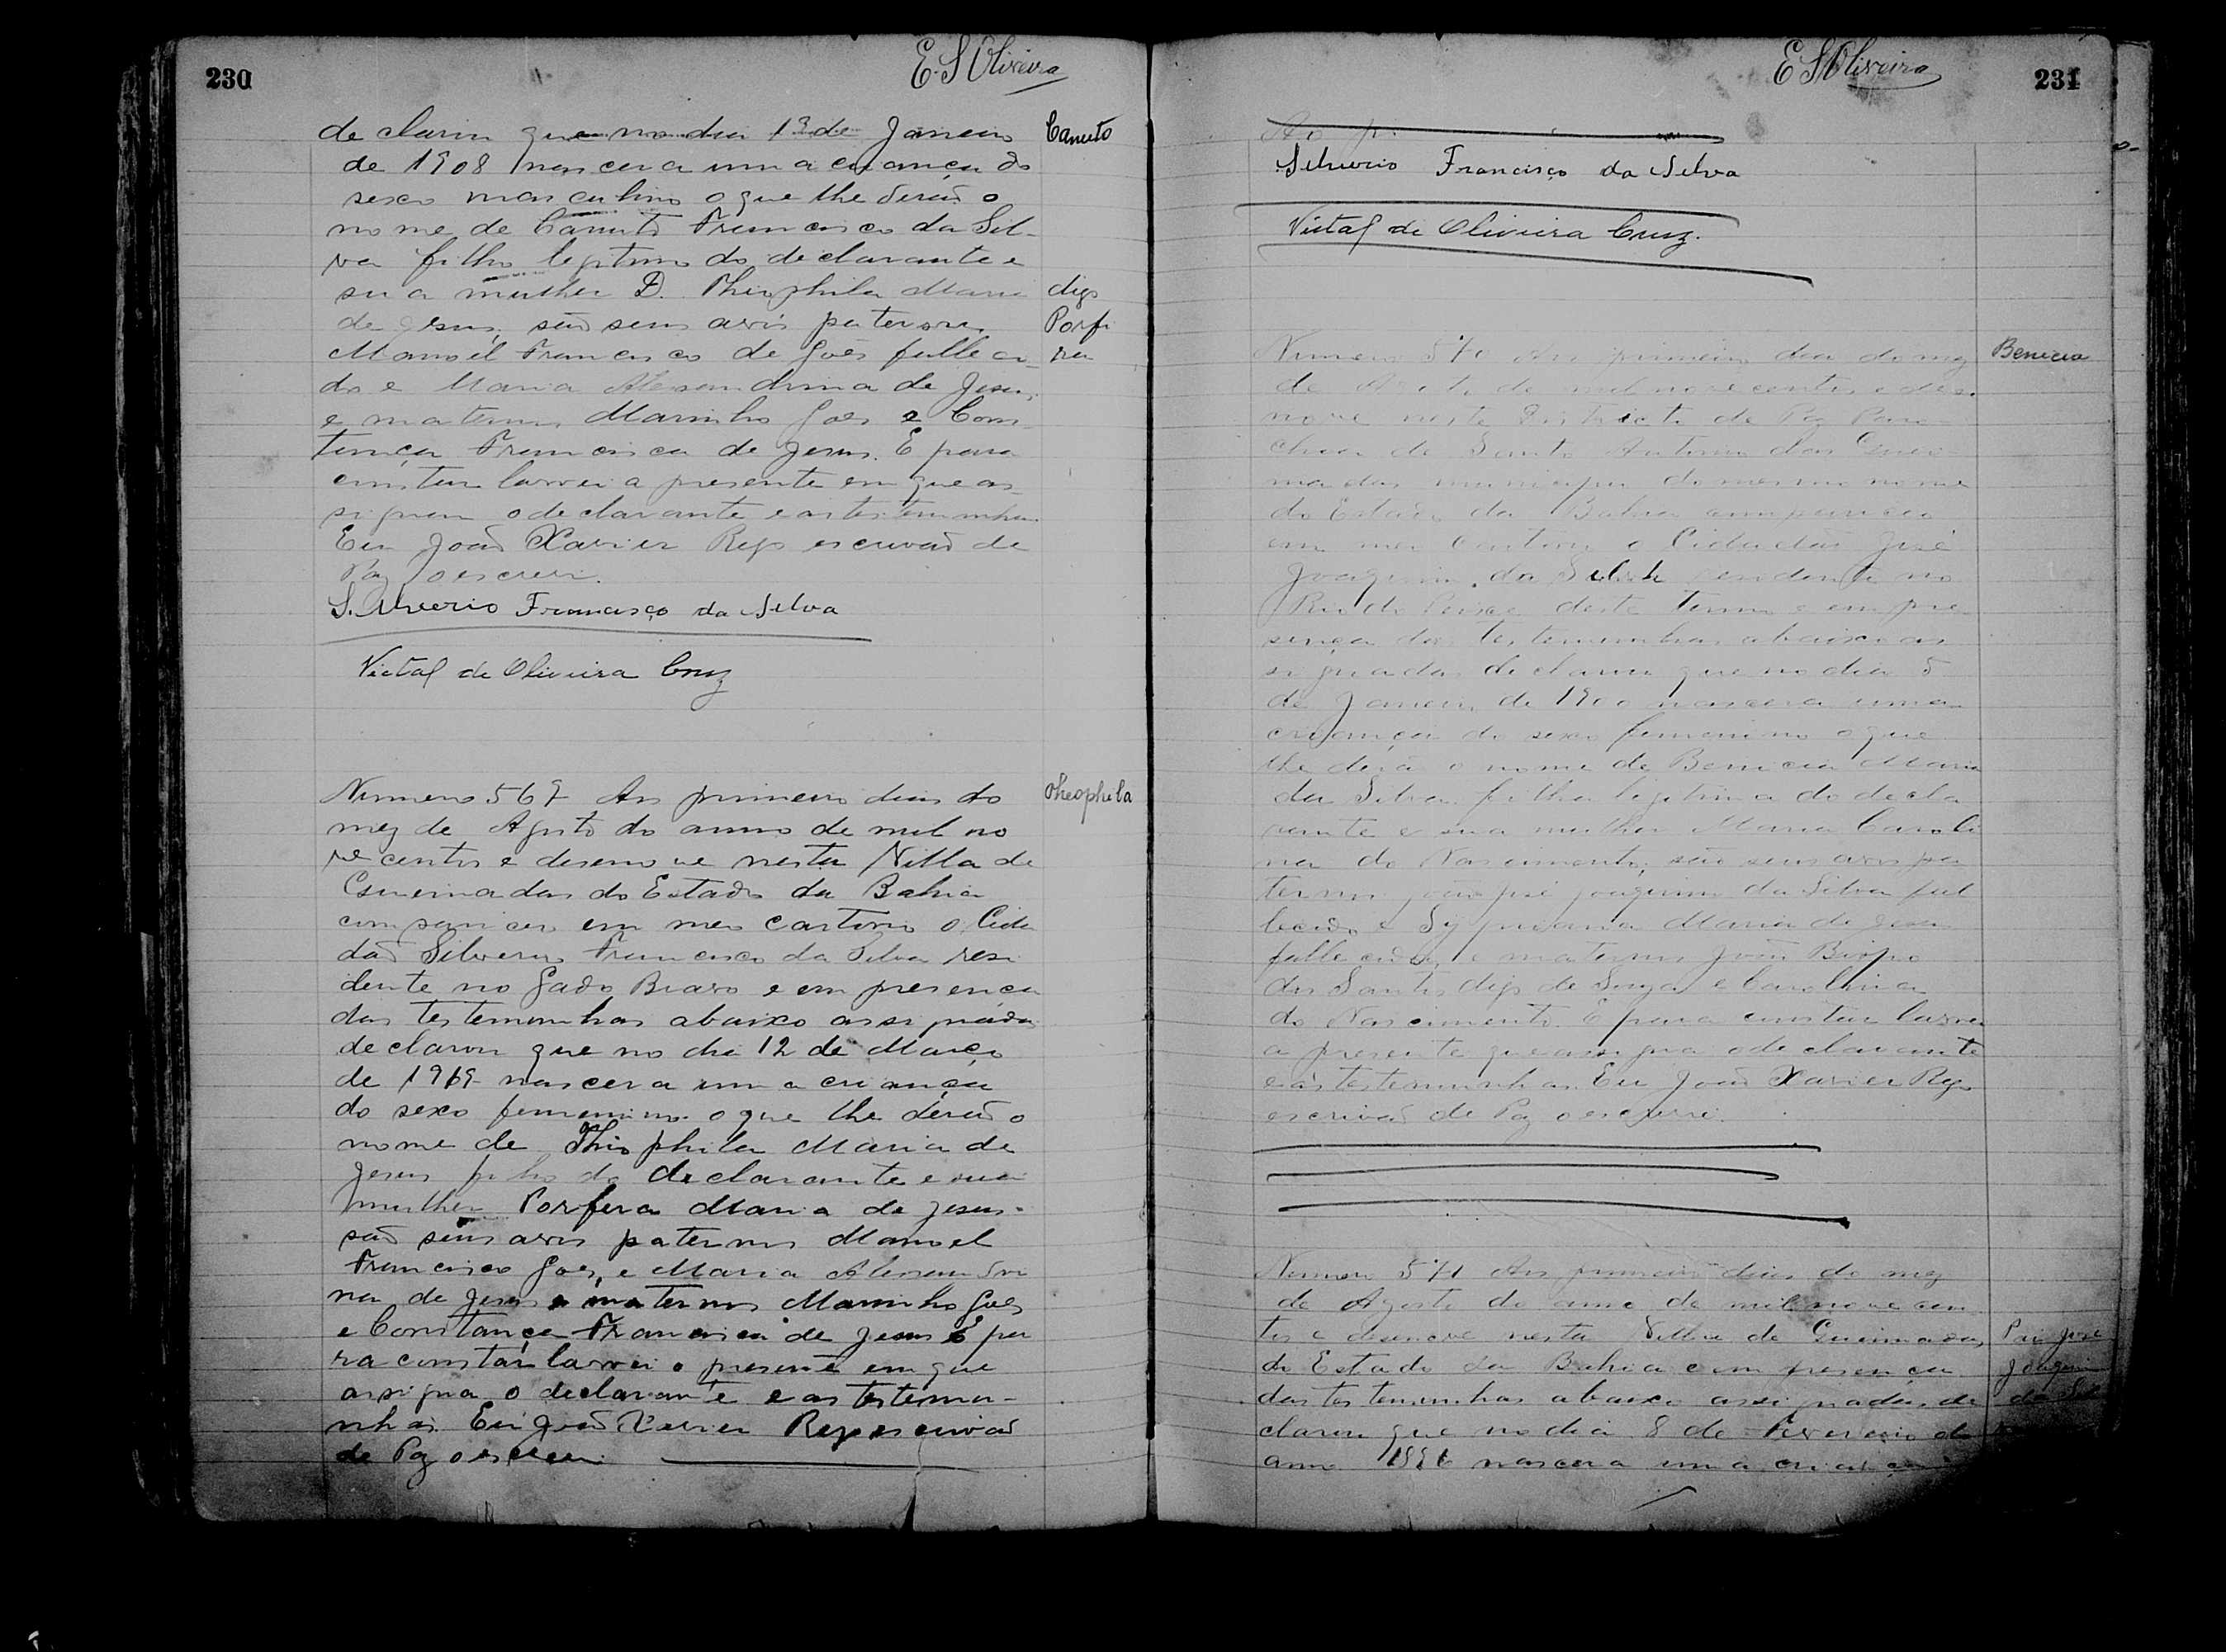 230
E. S Oliveira
declarou que no dia 13 de Janeiro
Canuto
de 1908 nascera uma criança do
sexo masculino o que lhe derão o
nome de Canuto Francisco da Sil-
va filho legitimo do declarante e
sua mulher D. Theophila Maria
digo
de Jesus, são seus avós paternos
Porfi
Manoel Francisco de Goes falleci-
ra
do e Maria Alexandrina de Jesus,
e maternos Marinho Goes e Cons-
tança Francisca de Jesus. E para
constar lavrei a presente em que as-
signam o declarante e as testemunhas
Eu João Xavier Rego escrivão de
Paz o escrevi.
Silverio Francisco da Silva
Victal de Oliveira Cruz
Numero 569 Aos primeiro dias do
Theophila
mez de Agosto do anno de mil no
ve centos e desenove nesta Villa de
Queimadas do Estado da Bahia
compareceo em meo cartorio o Cida
dão Silverio Francisco da Silva resi
dente no Gado Bravo e em presença
das testemunhas abaixo assignadas
declarou que no dia 12 de Março
de 1919 nascera uma criança
do sexo femenino o que lhe derão o
nome de Theophila Maria de
Jesus filha do declarante e sua
mulher Porfera Maria de Jesus.
são seus avós paternos Manoel
Francisco Goes, e Maria Alexandri
na de Jesus e maternos Marinho Goes
e Constança Francisca de Jesus E pa
ra constar lavrei o presente em que
assigna o declarante e as testemu-
nhas. Eu João Xavier Rego escrivão
de Paz o escrevi
E S Oliveira
231
Silverio Francisco da Silva
Victal de Oliveira Cruz.
Numero 570 Aos primeiro dia do mez
Benicia
de Agosto de mil nove centos e dese
nove neste Districto de Paz Paro
chia de Santo Antonio das Quei
madas municipio do mesmo nome
do Estado da Bahia compareceo
em meu Cartorio o Cidadão José
Joaquim da Silva residente no
Rio do Peixe deste termo e em pre
sença das testemunhas abaixo as
signadas declarou que no dia 5
de Janeiro de 1900 nascera uma
criança do sexo femenino o que
lhe derão o nome de Benicia Maria
da Silva filha legitima do decla
rante e sua mulher Maria Caroli
na do Nascimento, são seus avos pa
ternos José Joaquim da Silva fal
lecido e Maria de Jesus
fallecida, e maternos João
dos Santos digo de Souza e Carolina
do Nascimento. E para constar lavrei
a presente que assigna o declarante
e as testemunhas. Eu João Xavier Rego
escrivão de Paz o escrevi.
Numero 571 Aos primeiro dias do mez
de Agosto do anno de mil nove cen
tos e desenove nesta Villa de Queimadas,
Pai José
do Estado da Bahia e em presença
Joaquim
das testemunhas abaixo assignadas, de
da
clarou que no dia 8 de Fevereiro do
anno nascera uma criança